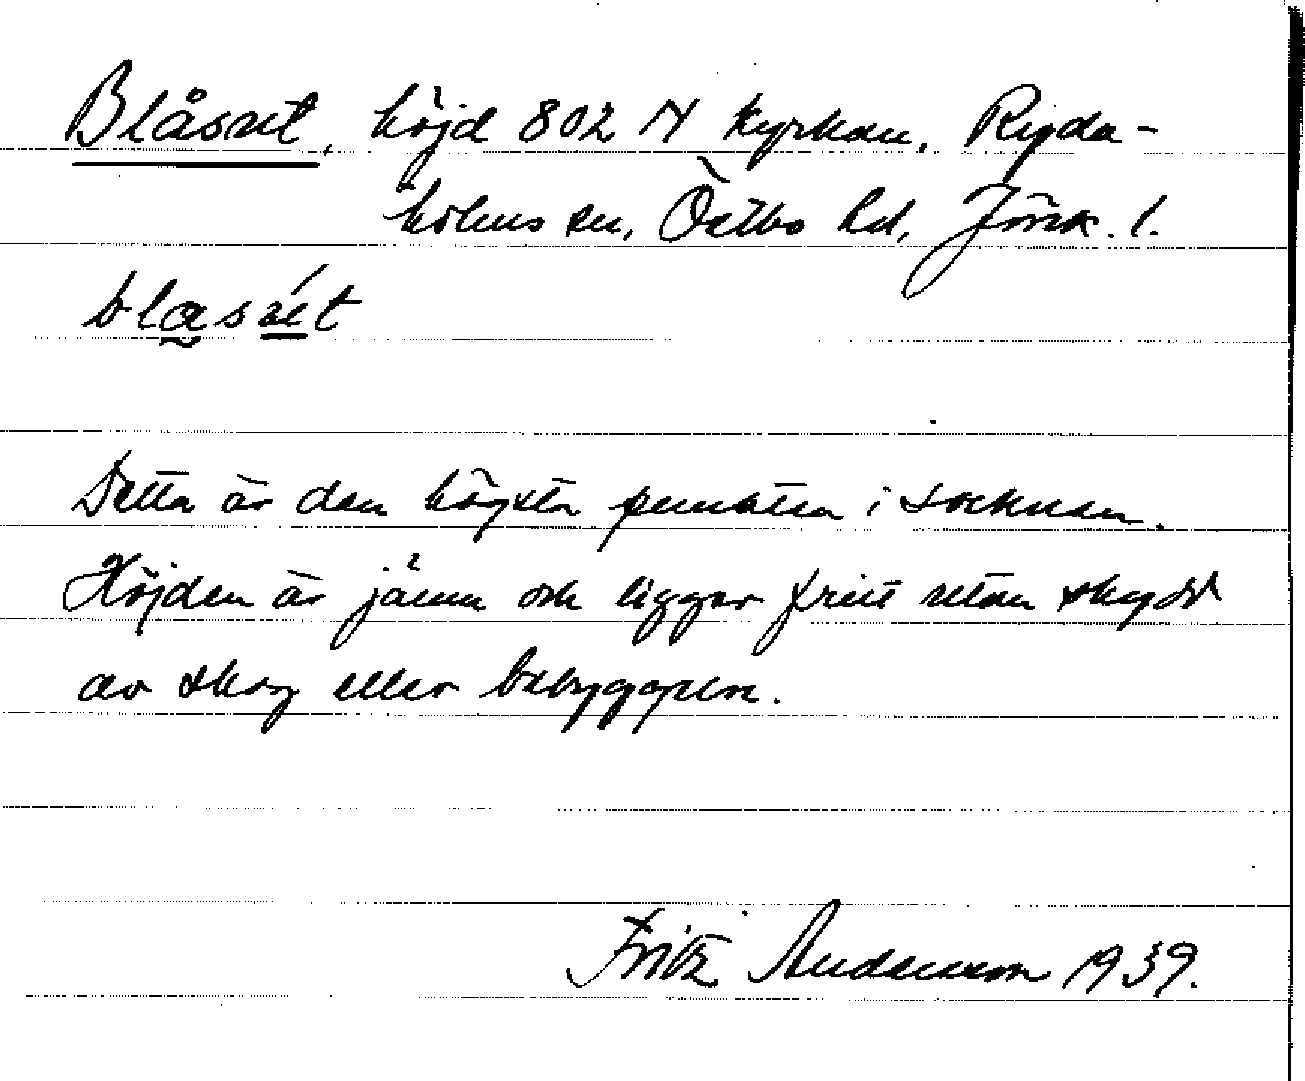 Blåsut, höjd 802 N kyrkan, Rydaholms sn, Östbo hd, Jönk. l.
blasút
Detta är den högsta punkten i socknen.
Höjden är jämn och ligger fritt utan skydd
av skog eller bebyggelse.
Fritz Andersson 1939.